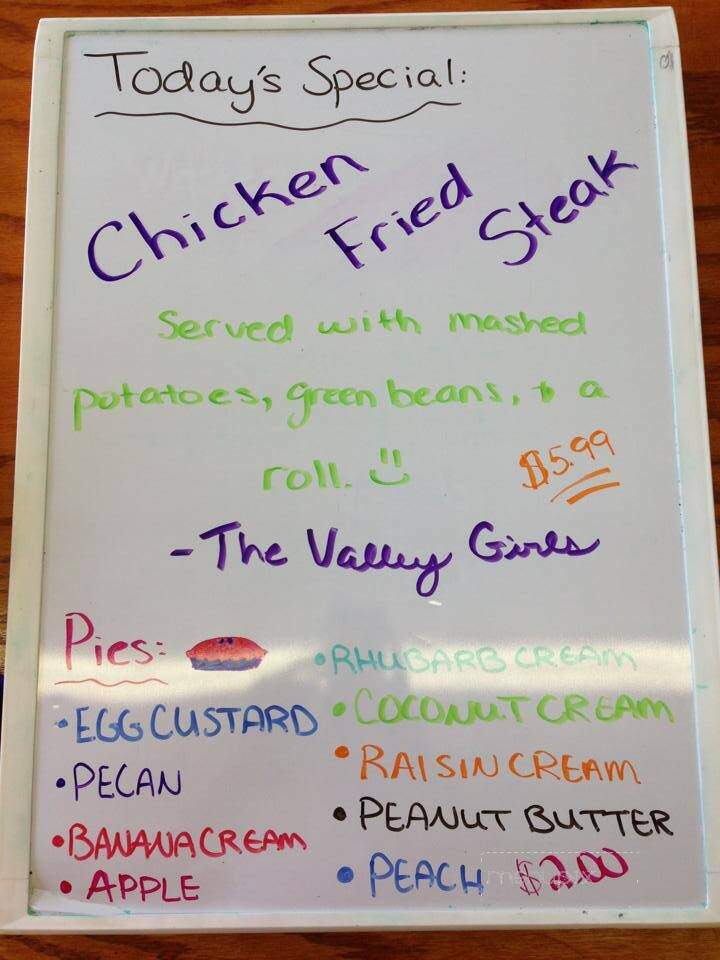 Today's Special:
Chicken Fried Steak
Served with mashed
potatoes, green beans, + a
roll.
$5.99
-The Valley Girls
Pies:
• EGG CUSTARD
• PECAN
• BANANA CREAM
• APPLE
• RHUBARB CREAM
• COCONUT CREAM
• RAISIN CREAM
• PEANUT BUTTER
• PEACH $2.00